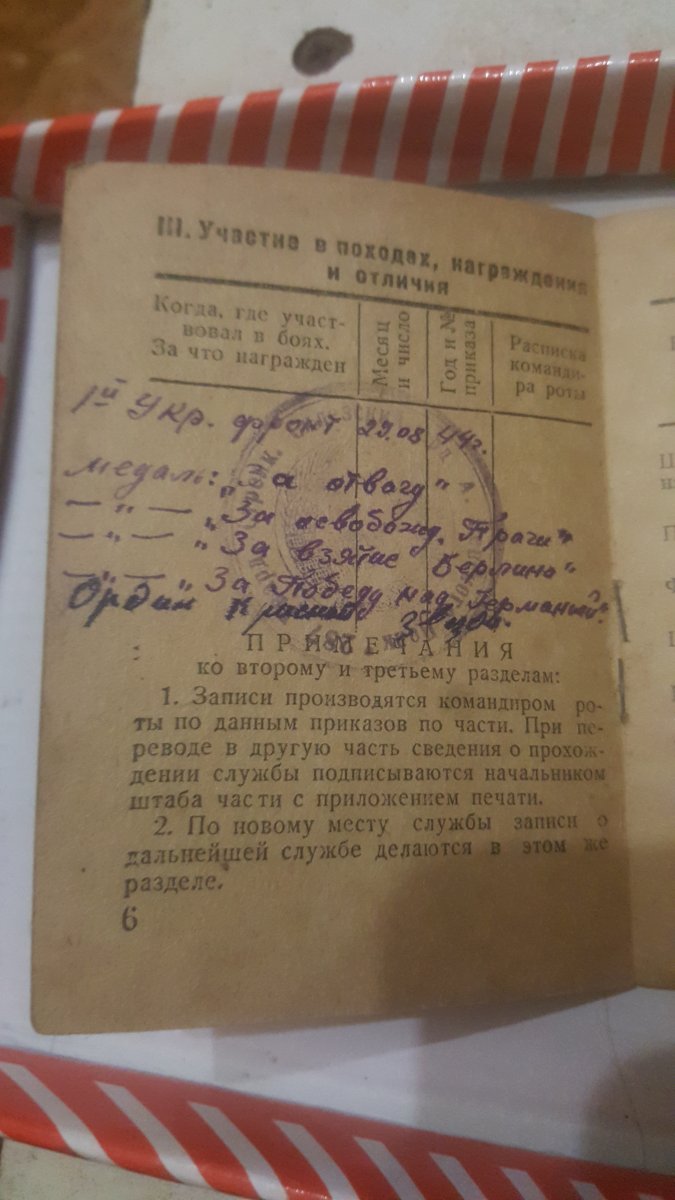 III. Участие в походах, награждения
и отличия
Когда, где участ-
вовал в боях.
За что награжден
Месяц
и число
Год и №
приказа
Расписка
команди-
ра роты
1й Укр. фронт 29.08 44г.
медаль: "За отвагу"
— " — "За освобожд. Праги"
— " — "За взятие Берлина"
— " — "За Победу над Германией".
Орден Красной Звезды.
ПРИМЕЧАНИЯ
ко второму и третьему разделам:
1. Записи производятся командиром ро-
ты по данным приказов по части. При пе-
реводе в другую часть сведения о прохож-
дении службы подписываются начальником
штаба части с приложением печати.
2. По новому месту службы записи о
дальнейшей службе делаются в этом же
разделе.
6